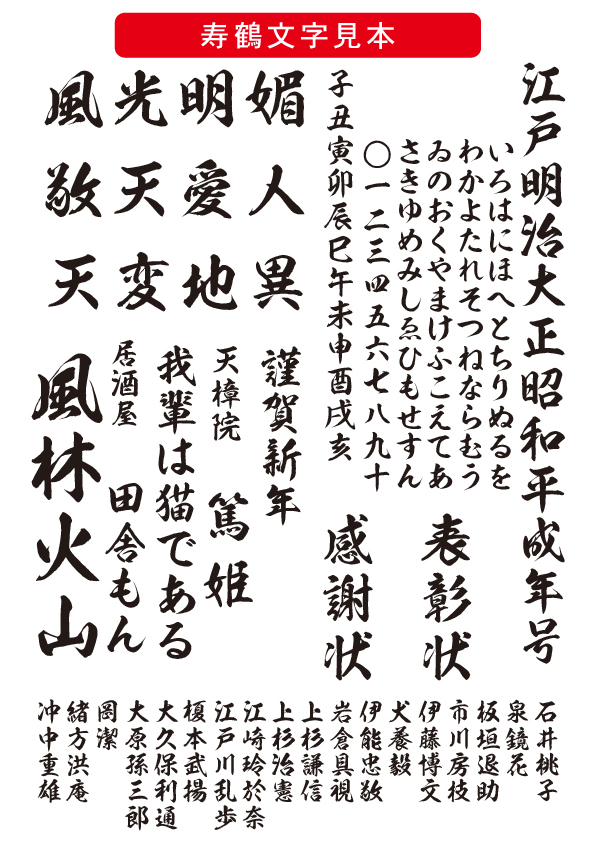 寿鶴文字見本
江戸明治大正昭和平成年号
いろはにほへとちりぬるを
わかよたれそつねならむう
ゐのおくやまけふこえてあ
さきゆめみしゑひもせすん
〇一二三四五六七八九十
子丑寅卯辰巳午未申酉戌亥
表彰状
感謝状
媚人異
明愛地
光天変
風敬天
謹賀新年
天樟院
篤姫
我輩は猫である
居酒屋
田舎もん
風林火山
石井桃子
泉鏡花
板垣退助
市川房枝
伊藤博文
犬養毅
伊能忠敬
岩倉具視
上杉謙信
上杉治憲
江崎玲於奈
江戸川乱歩
榎本武揚
大久保利通
大原孫三郎
岡潔
緒方洪庵
冲中重雄